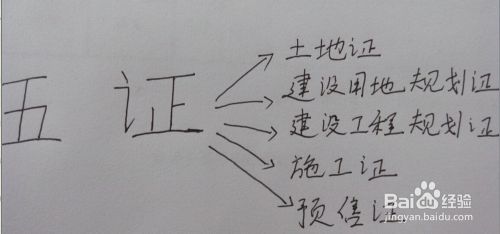 土地证
建设用地规划证
五证
建设工程规划证
施工证
预售证
Baidu经验
jingyan.baidu.com